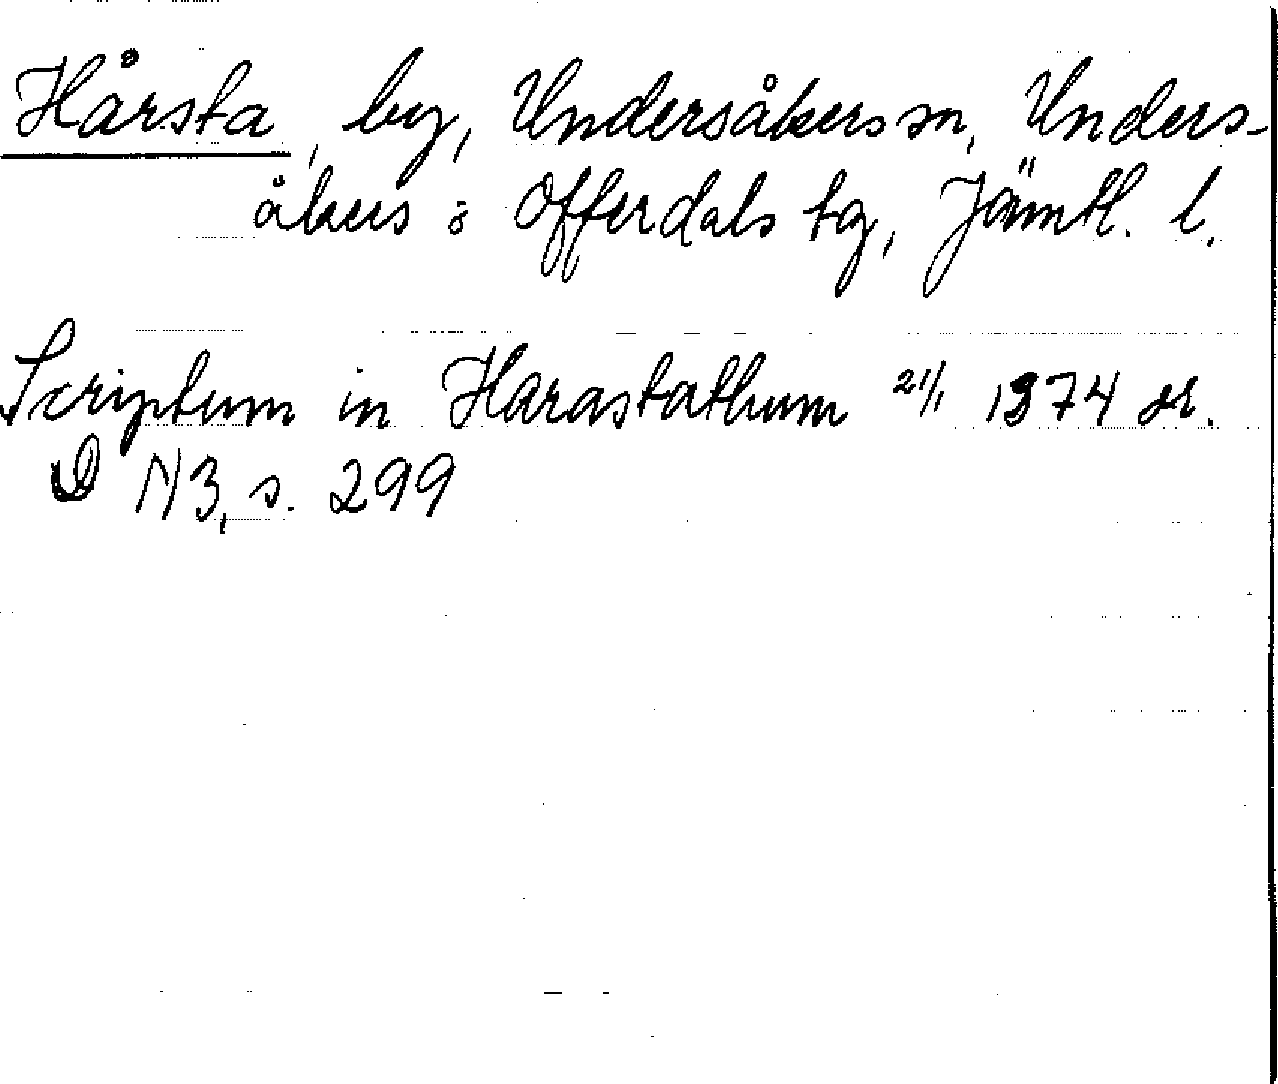 Hårsta, by, Undersåkers sn, Unders-
åkers o Offerdals tg, Jämtl. l.
Scriptum in Harastathum 21/1 1374 or.
D N3, s. 299